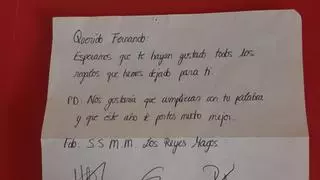 Querido Fernando:
Esperamos que te hayan gustado todos los
regalos que hemos dejado para ti.
PD: Nos gustaría que cumplieras con tu palabra
y que este año te portes mucho mejor.
Fdo. S S M M. Los Reyes Magos